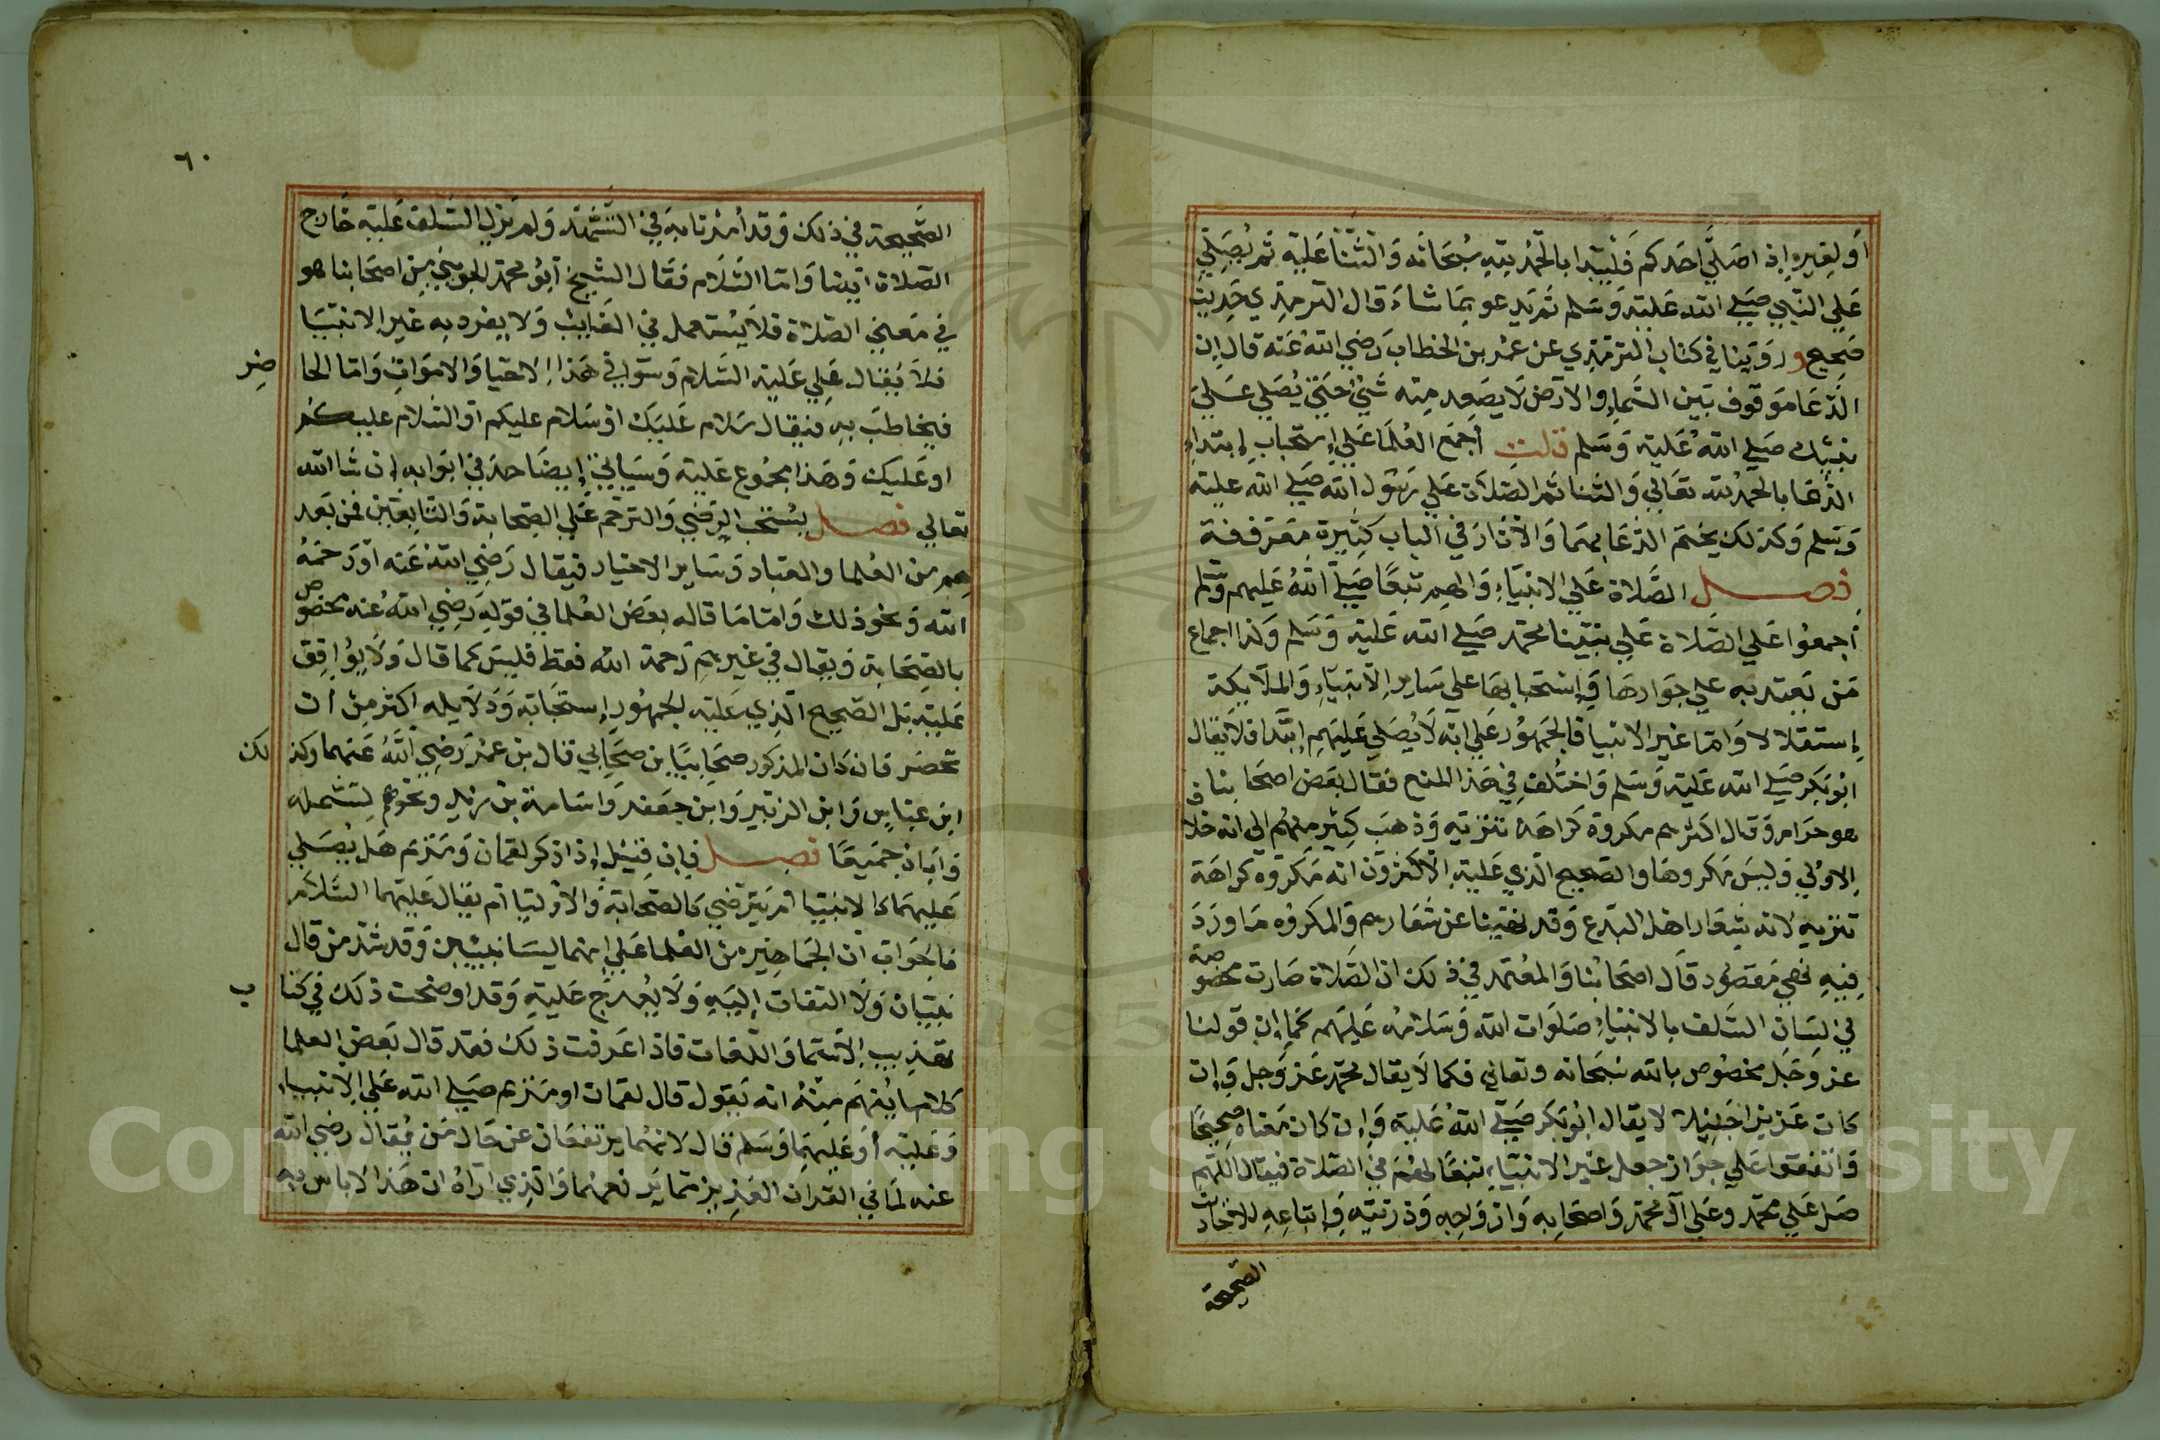 أو لغيره إذا صلي احدكم فليبدا بالحمد لله سبحانه والثنا عليه ثم يصلي
علي النبي صلي الله عليه وسلم ثم يدعو بما شاء قال الترمذي حديث
صحيح وروينا في كتاب الترمذي عن عمر بن الخطاب رضي الله عنه قال ان
الدعا موقوف بين السماء والارض لا يصعد منه شئ حتي يصلي علي
نبيك صلي الله عليه وسلم قلت أجمع العلما علي إستحباب إبتداء
الدعا بالحمد لله تعالي والثنا ثم الصلاة علي رسول الله صلي الله عليه
وسلم وكذلك يختم الدعا بهما والآثار في الباب كثيرة معروفة
فصل الصلاة علي الانبياء والهم تبعا صلي الله عليهم وسلم
أجمعوا علي الصلاة علي نبينا محمد صلي الله عليه وسلم وكذا اجماع
من يعتد به علي جوازها وإستحبابها علي ساير الانبياء والملايكة
إستقلالا واما غير الانبيا فالجمهور علي انه لا يصلي عليهم إبتدا فلا يقال
ابو بكر صلي الله عليه وسلم واختلف في هذا المنع فقال بعض اصحابنا
هو حرام وقال اكثرهم مكروه كراهة تنزيه وذهب كثير منهم الي انه خلاف
الاولي وليس مكروها والصحيح الذي عليه الاكثرون انه مكروه كراهة
تنزيه لانه شعار اهل البدع وقد نهينا عن شعارهم والمكروه ما ورد
فيه نهي مقصود قال اصحابنا والمعتمد في ذلك ان الصلاة صارت مخصوصة
في لسان السلف بالانبياء صلوات الله وسلامه عليهم كما إن قولنا
عز وجل مخصوص بالله سبحانه وتعالي فكما لا يقال محمد عز وجل وان
كان عزيزا جليلا لا يقال ابو بكر صلي الله عليه وإن كان معناه صحيحا
واتفقوا علي جواز جعل غير الانبياء تبعا لهم في الصلاة فيقال اللهم
صل علي محمد وعلي آل محمد واصحابه وازواجه وذريته وإتباعه للاحاديث
الصحيحة
٦٠
الصحيحة في ذلك وقد أمرنا به في التشهد ولم يزل السلف عليه خارج
الصلاة ايضا واما السلام فقال الشيخ ابو محمد الجويني من اصحابنا هو
في معني الصلاة فلا يستعمل في الغايب ولا يفرد به غير الانبيا
فلا يقال علي عليه السلام وسوا في هذا الاحيا والاموات واما الحا
ضر
فيخاطب به فيقال سلام عليك او سلام عليكم او السلام عليكم
او عليك وهذا مجموع عليه وسياتي إيضاحه في ابوابه إن شا الله
تعالي فصل يستحب الترضي والترحم علي الصحابة والتابعين فمن بعد
هم من العلما والعباد وساير الاخيار فيقال رضي الله عنه او رحمه
الله ونحو ذلك واما ما قاله بعض العلما في قوله رضي الله عنه مخصوص
بالصحابة ويقال في غيرهم رحمة الله فقط فليس كما قال ولا يوافق
عليه بل الصحيح الذي عليه الجمهور إستحبابه ودلايله اكثر من أن
تحصر فان كان المذكور صحابيا بن صحابي قال بن عمر رضي الله عنهما وكذ
لك
ابن عباس وابن الزبير وابن جعفر واسامة بن زيد ونحوهم لتشمله
واباه جميعا فصل فإن قيل إذا ذكر لقمان ومريم هل يصلي
عليهما كالانبيا ام يترضي كالصحابة والاوليا ام يقال عليهما السلام
فالجواب ان الجماهير من العلما علي انهما ليسا نبيين وقد شذ من قال
نبيان ولا التفات اليه ولا يعرج عليه وقد اوضحت ذلك في كتا
ب
تهذيب الاسما واللغات فاذا عرفت ذلك فقد قال بعض العلما
كلاما يفهم منه انه يقول قال لقمان او مريم صلي الله علي الانبياء
وعليه أو عليهما وسلم قال لانهما يرتفعان عن حال من يقال رضي الله
عنه لما في القرآن العزيز مما يرفعهما والذي اراه ان هذا لا باس به